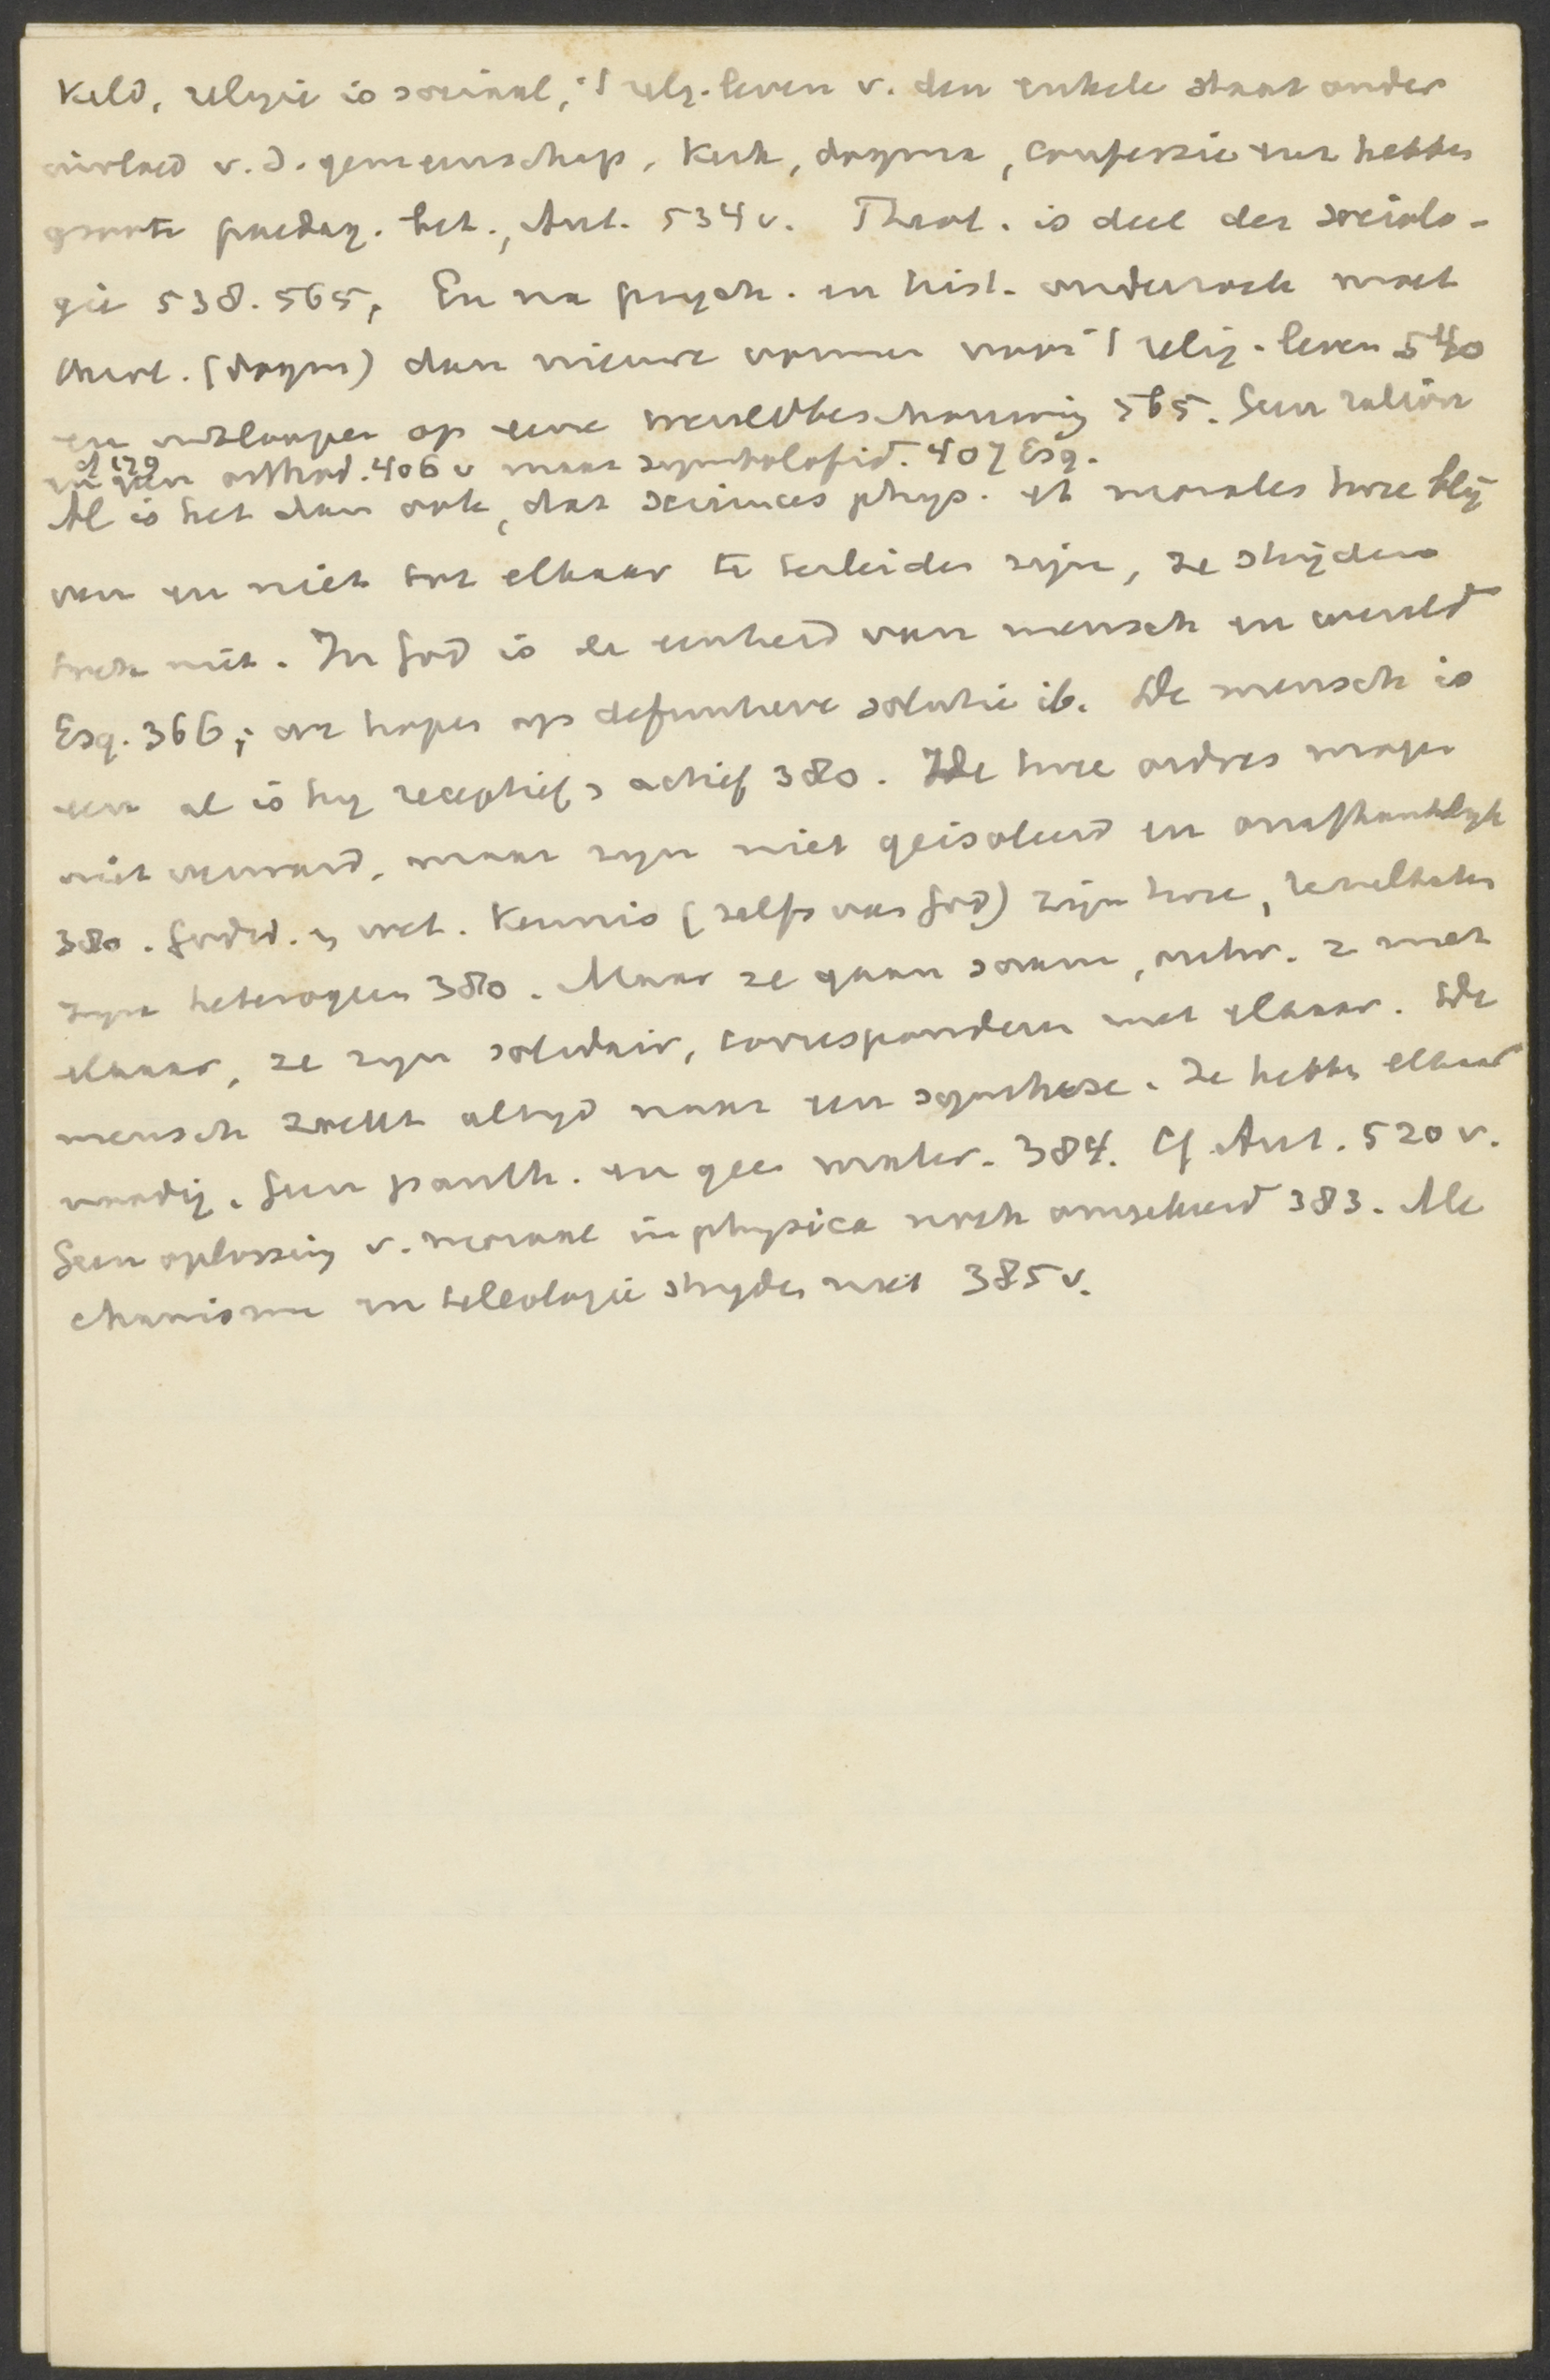 keld, religie is sociaal, 't relg. leven v. den enkele staat onder
invloed v. d. gemeenschap. Kerk, dogma, confessie enz hebben
groote paedag. bet., Aut. 534 v. Theol. is deel der sociolo-
gie 538. 565, En na psych. en hist. onderzoek moet
theol. (dogm) dan nieuwe vormen voor 't relig. leven 540
en uitloopen op eene wereldbeschouwing 565. Geen ration
en geen orthod. 406 v maar symbolofid. 407 Esq.
Al is het dan ook, dat sciences phys. et morales twee blij
ven en niet tot elkaar te herleiden zijn, ze strijden
toch niet. In God is er eenheid van mensch en wereld
Esq. 366; we hopen op definitieve solutie ib. De mensch is
een al is hij receptief, actief 380. De twee ordres mogen
niet verward, maar zijn niet geisoleerd en onafhankelijk
380. Godsd. en wet. Kennis (zelfs van God) zijn twee, resultaten
zijn heterogeen 380. Maar ze gaan saam, ontw. z met
elkaar, ze zijn solidair, correspondeeren met elkaar. De
mensch zoekt altijd naar een synthese. Ze hebben elkaar
noodig. Geen panth. en geen mater. 384. Cf Aut. 520 v.
Geen oplossing v. moraal in physica noch omgekeerd 383. Me
chanisme en teleologie strijden niet 385 v.